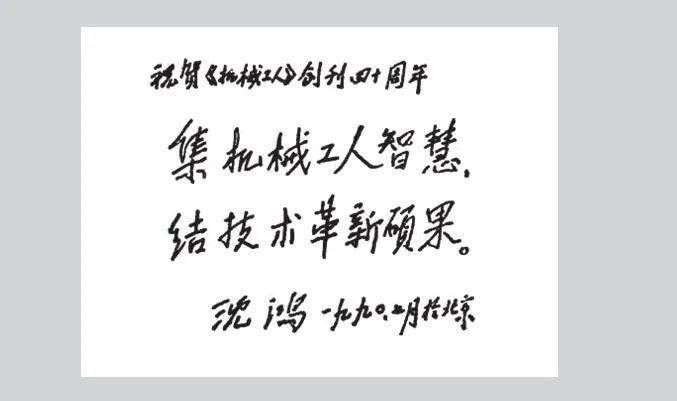 祝贺《机械工人》创刊四十周年
集机械工人智慧,
结技术革新硕果。
沈鸿 一九九〇.二月于北京